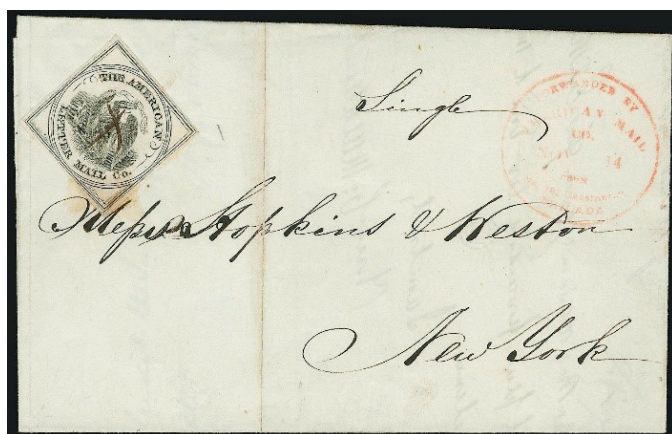 THE AMERICAN
LETTER MAIL Co.
Single
FORWARDED BY
MAIL
CO.
14
FROM
Messrs Hopkins & Weston
New York